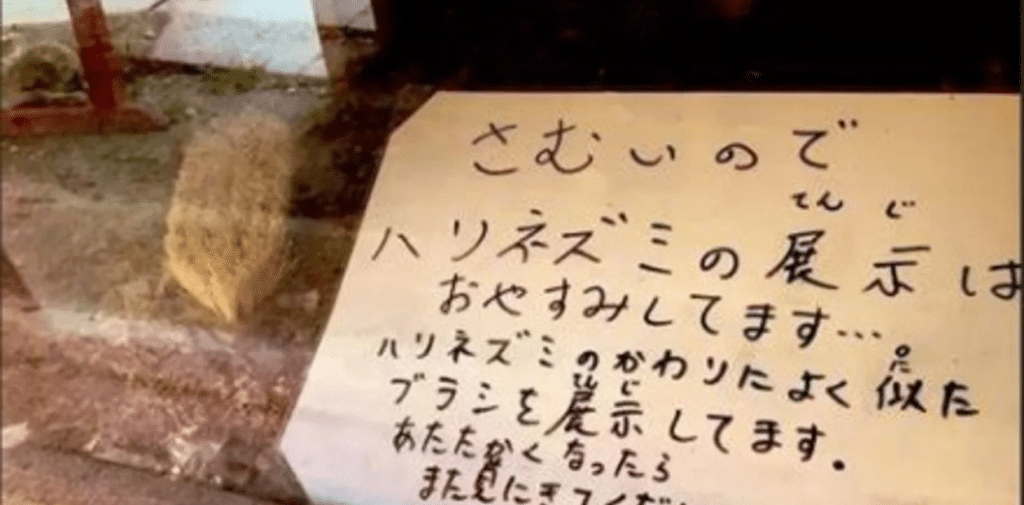 さむいので
てんじ
ハリネズミの展示は
おやすみしてます…
に
ハリネズミのかわりによく似た
てんじ
ブラシを展示してます。
あたたかくなったら
また見にきてくだ